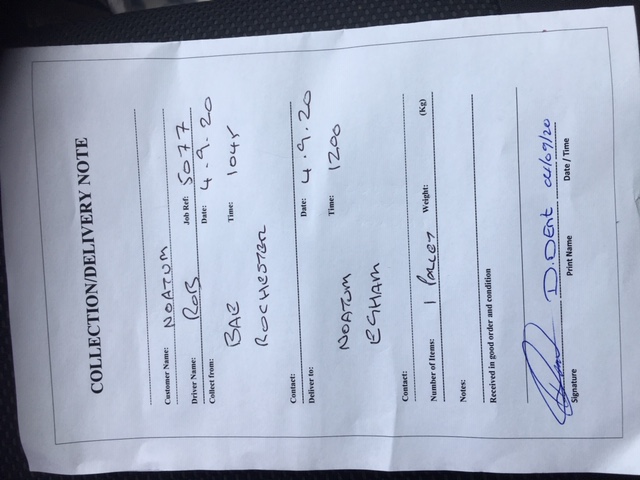 COLLECTION/DELIVERY NOTE
Customer Name: NOATUM
Driver Name: ROB Job Ref: 5077
Collect from: Date: 4.9.20
BAE Time: 1045
ROCHESTER
Contact:
Deliver to: Date: 4.9.20
NOATUM Time: 1200
EGHAM
Contact:
Number of Items: 1 PALLET Weight: (Kg)
Notes:
Received in good order and condition
D.DENT 04/09/20
Signature Print Name Date / Time